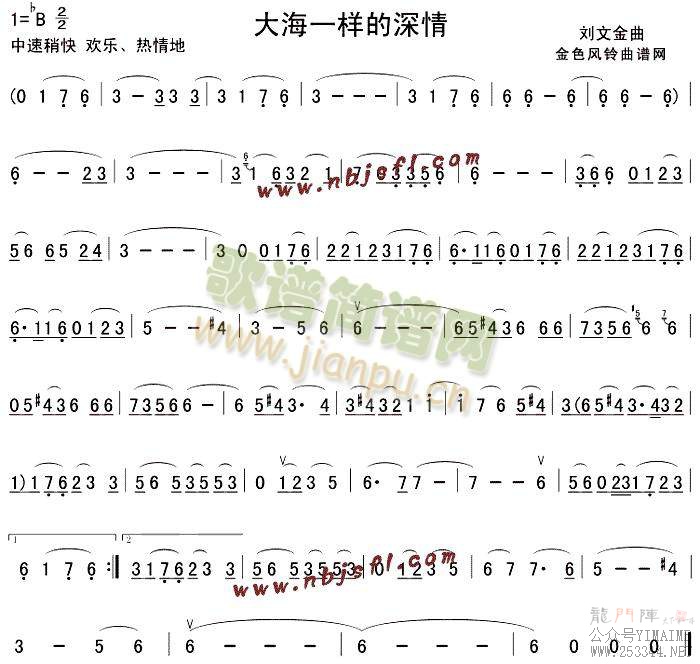 1=♭B 2/2
大海一样的深情
刘文金曲
中速稍快 欢乐、热情地
金色风铃曲谱网
(0 1 7 6 | 3 - 3 3 3 | 3 1 7 6 | 3 - - - | 3 1 7 6 | 6 6 - 6 | 6 - - 6) |
6 - - 2 3 | 3 - - - | 3 1 6 3 2 1 | 7 0 3 3 5 6 | 6 - - - | 3 6 6 0 1 2 3 |
www.nbjsfl.com
5 6 6 5 2 4 | 3 - - - | 3 0 0 1 7 6 | 2 2 1 2 3 1 7 6 | 6· 1 1 6 0 1 7 6 | 2 2 1 2 3 1 7 6 |
歌谱简谱网
6· 1 1 6 0 1 2 3 | 5 - - #4 | 3 - 5 6 | 6 - - - | 6 5 #4 3 6 6 6 | 7 3 5 6 6 6 |
www.jianpu.cn
0 5 #4 3 6 6 6 | 7 3 5 6 6 6 - | 6 5 #4 3· 4 | 3 #4 3 2 1 i | i 7 6 5 #4 | 3 (6 5 #4 3· 4 3 2 |
1) 1 7 6 2 3 3 | 5 6 5 3 5 5 3 | 0 1 2 3 5 | 6· 7 7 - | 7 - - 6 | 5 6 0 2 3 1 7 2 3 |
1 2
6 1 7 6 :‖ 3 1 7 6 2 3 3 | 5 6 5 3 5 5 3 | 0 1 2 3 5 | 6 7 7· 6 | 5 - - #4 |
www.nbjsfl.com
3 - 5 6 | 6 - - - | 6 - - - | 6 0 0 0 ‖
龍門陣
公众号YIMAIME
www.253344.NET